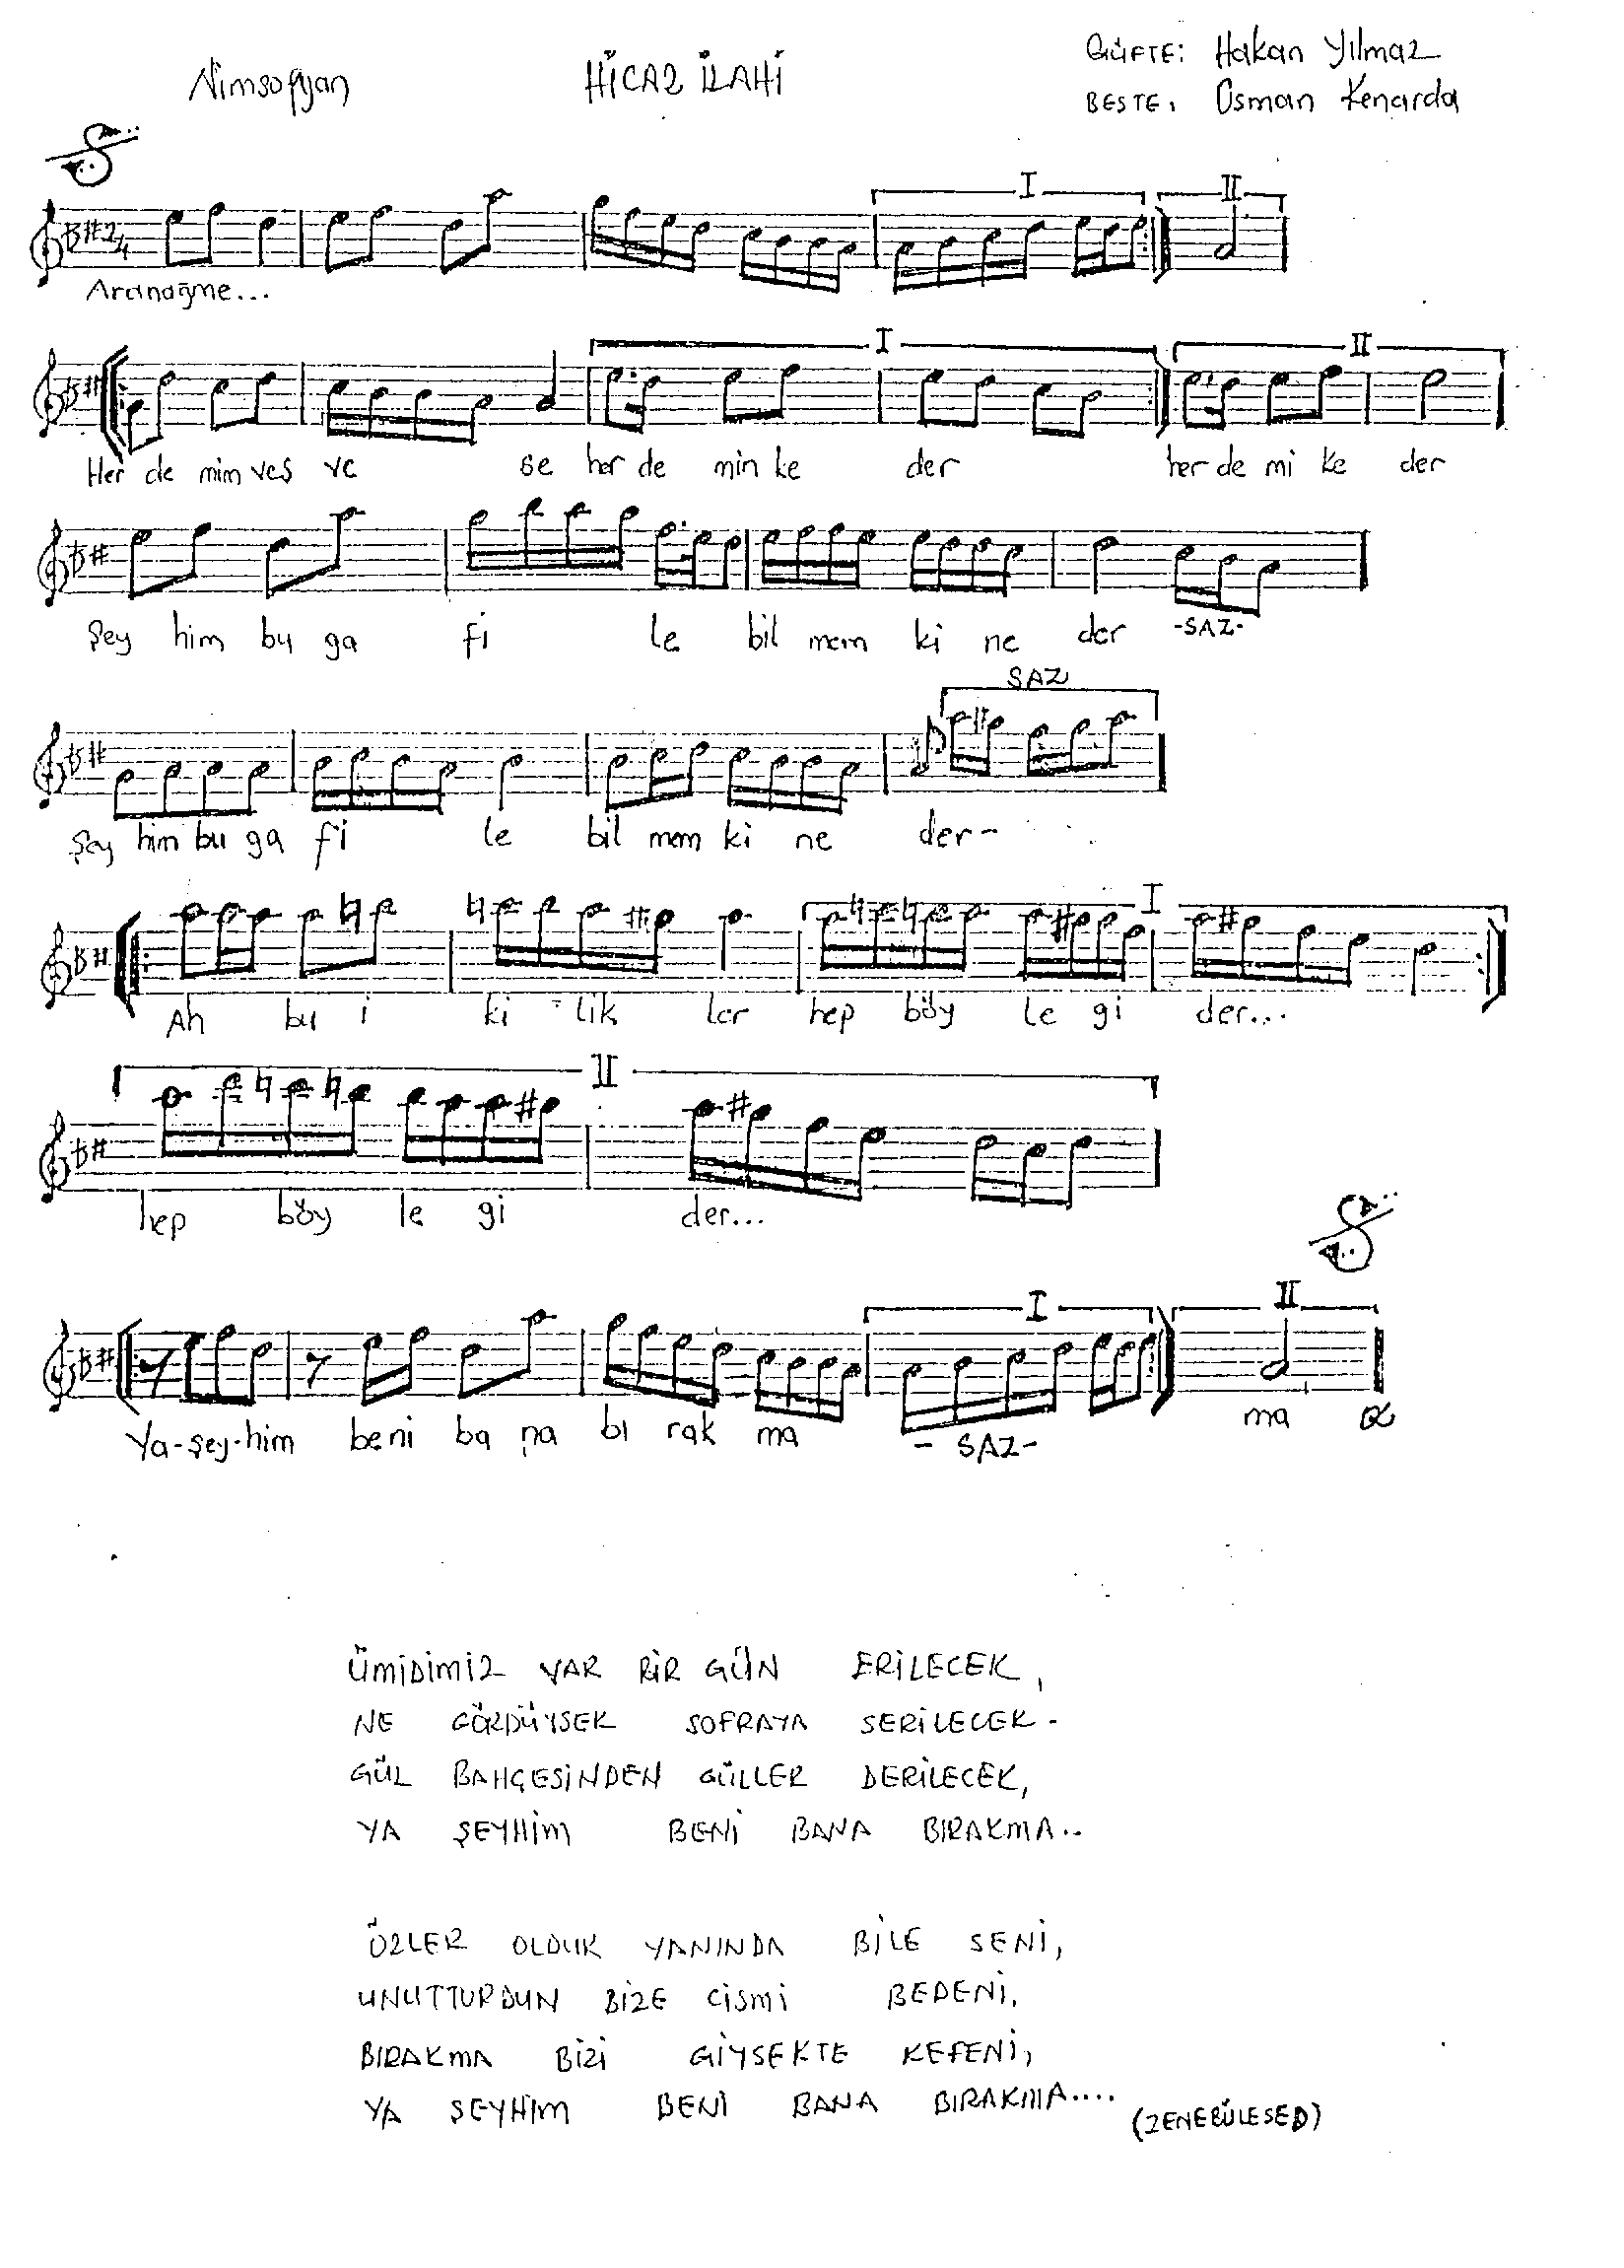 Nimsofyan HİCAZ İLAHİ GÜFTE: Hakan Yılmaz
BESTE: Osman Kenarda
I II
2/4
Aranağme...
I II
Her de mim ves ve se her de min ke der her de mi ke der
Şey him bu ga fi le bil mem ki ne der -SAZ-
SAZ
Şey him bu ga fi le bil mem ki ne der-
I
Ah bu i ki lik ler hep böy le gi der...
II
hep böy le gi der...
I II
Ya-şey-him beni ba na bı rak ma - SAZ- ma
ÜMİDİMİZ VAR BİR GÜN ERİLECEK,
NE GÖRDÜYSEK SOFRAYA SERİLECEK-
GÜL BAHÇESİNDEN GÜLLER DERİLECEK,
YA ŞEYHİM BENİ BANA BIRAKMA..
ÖZLER OLDUK YANINDA BİLE SENİ,
UNUTTURDUN BİZE CİSMİ BEDENİ.
BIRAKMA BİZİ GİYSEKTE KEFENİ,
YA ŞEYHİM BENİ BANA BIRAKMA....
(ZENEBÜLESED)